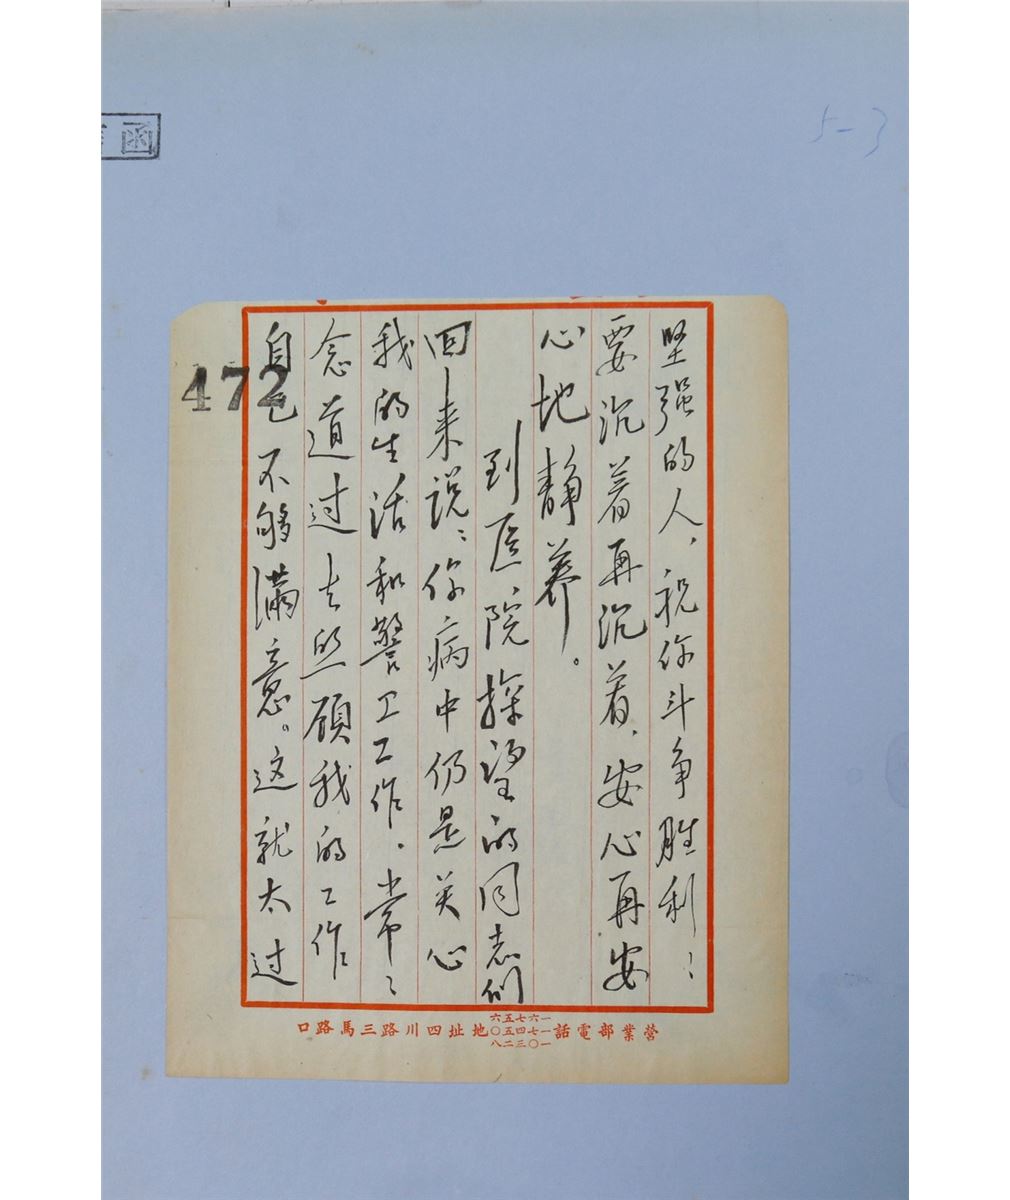 函
5-3
坚强的人，祝你斗争胜利：
要沉着再沉着，安心再安
心地静养。
到医院探望的同志们
回来说：你病中仍是关心
我的生活和警卫工作，常〻
念道过去照顾我的工作
自己不够满意。这就太过
472
營業部電話
一六七五六
一七四五〇
一〇三二八
地址四川路三馬路口